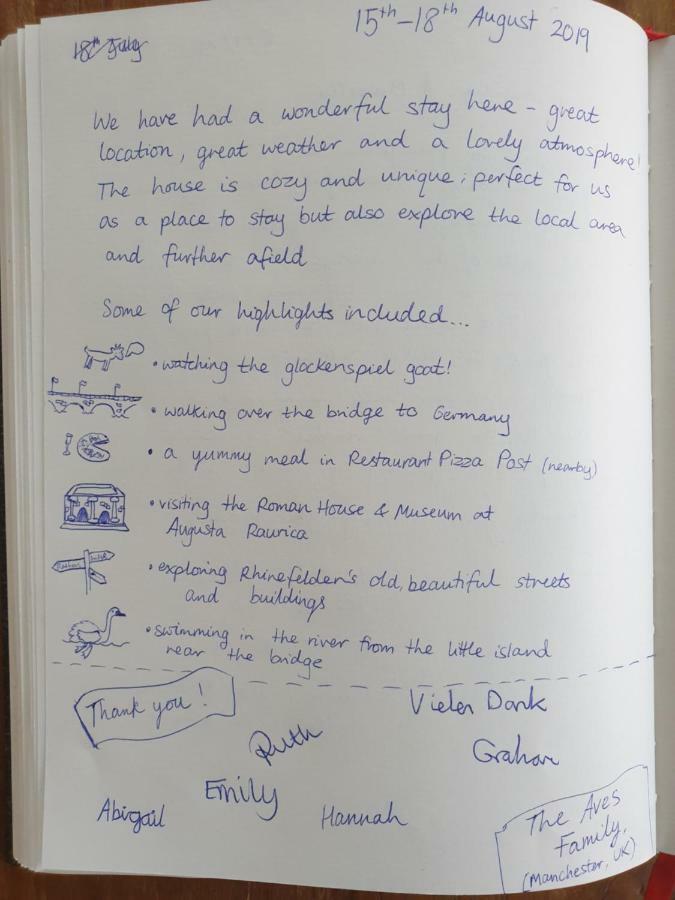 18th July
15th-18th August 2019
We have had a wonderful stay here - great
location, great weather and a lovely atmosphere!
The house is cozy and unique; perfect for us
as a place to stay but also explore the local area
and further afield
Some of our highlights included...
• watching the glockenspiel goat!
• walking over the bridge to Germany
• a yummy meal in Restaurant Pizza Post (nearby)
• visiting the Roman House & Museum at
Augusta Raurica
• exploring Rhinefelden's old, beautiful streets
and buildings
• swimming in the river from the little island
near the bridge
Thank you!
Vielen Dank
Ruth
Graham
Emily
Abigail
Hannah
The Aves
Family,
(Manchester, UK)